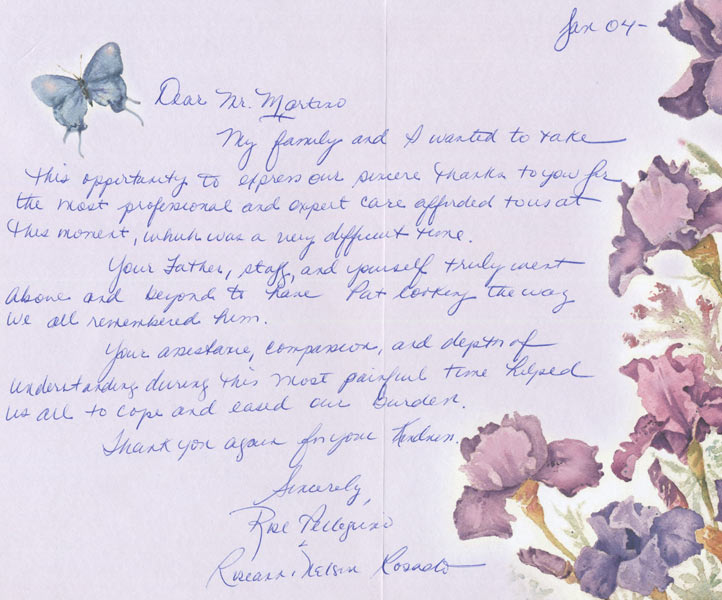 Jan 04-
Dear Mr. Martino
My family and I wanted to take
this opportunity to express our sincere thanks to you for
the most professional and expert care afforded to us at
this moment, which was a very difficult time.
Your Father, staff, and yourself truly went
above and beyond to have Pat looking the way
we all remembered him.
Your assistance, compassion, and depth of
understanding during this most painful time helped
us all to cope and eased our burden.
Thank you again for your kindness.
Sincerely,
Rose Pellegrino
Roseann, Nelson Rosado